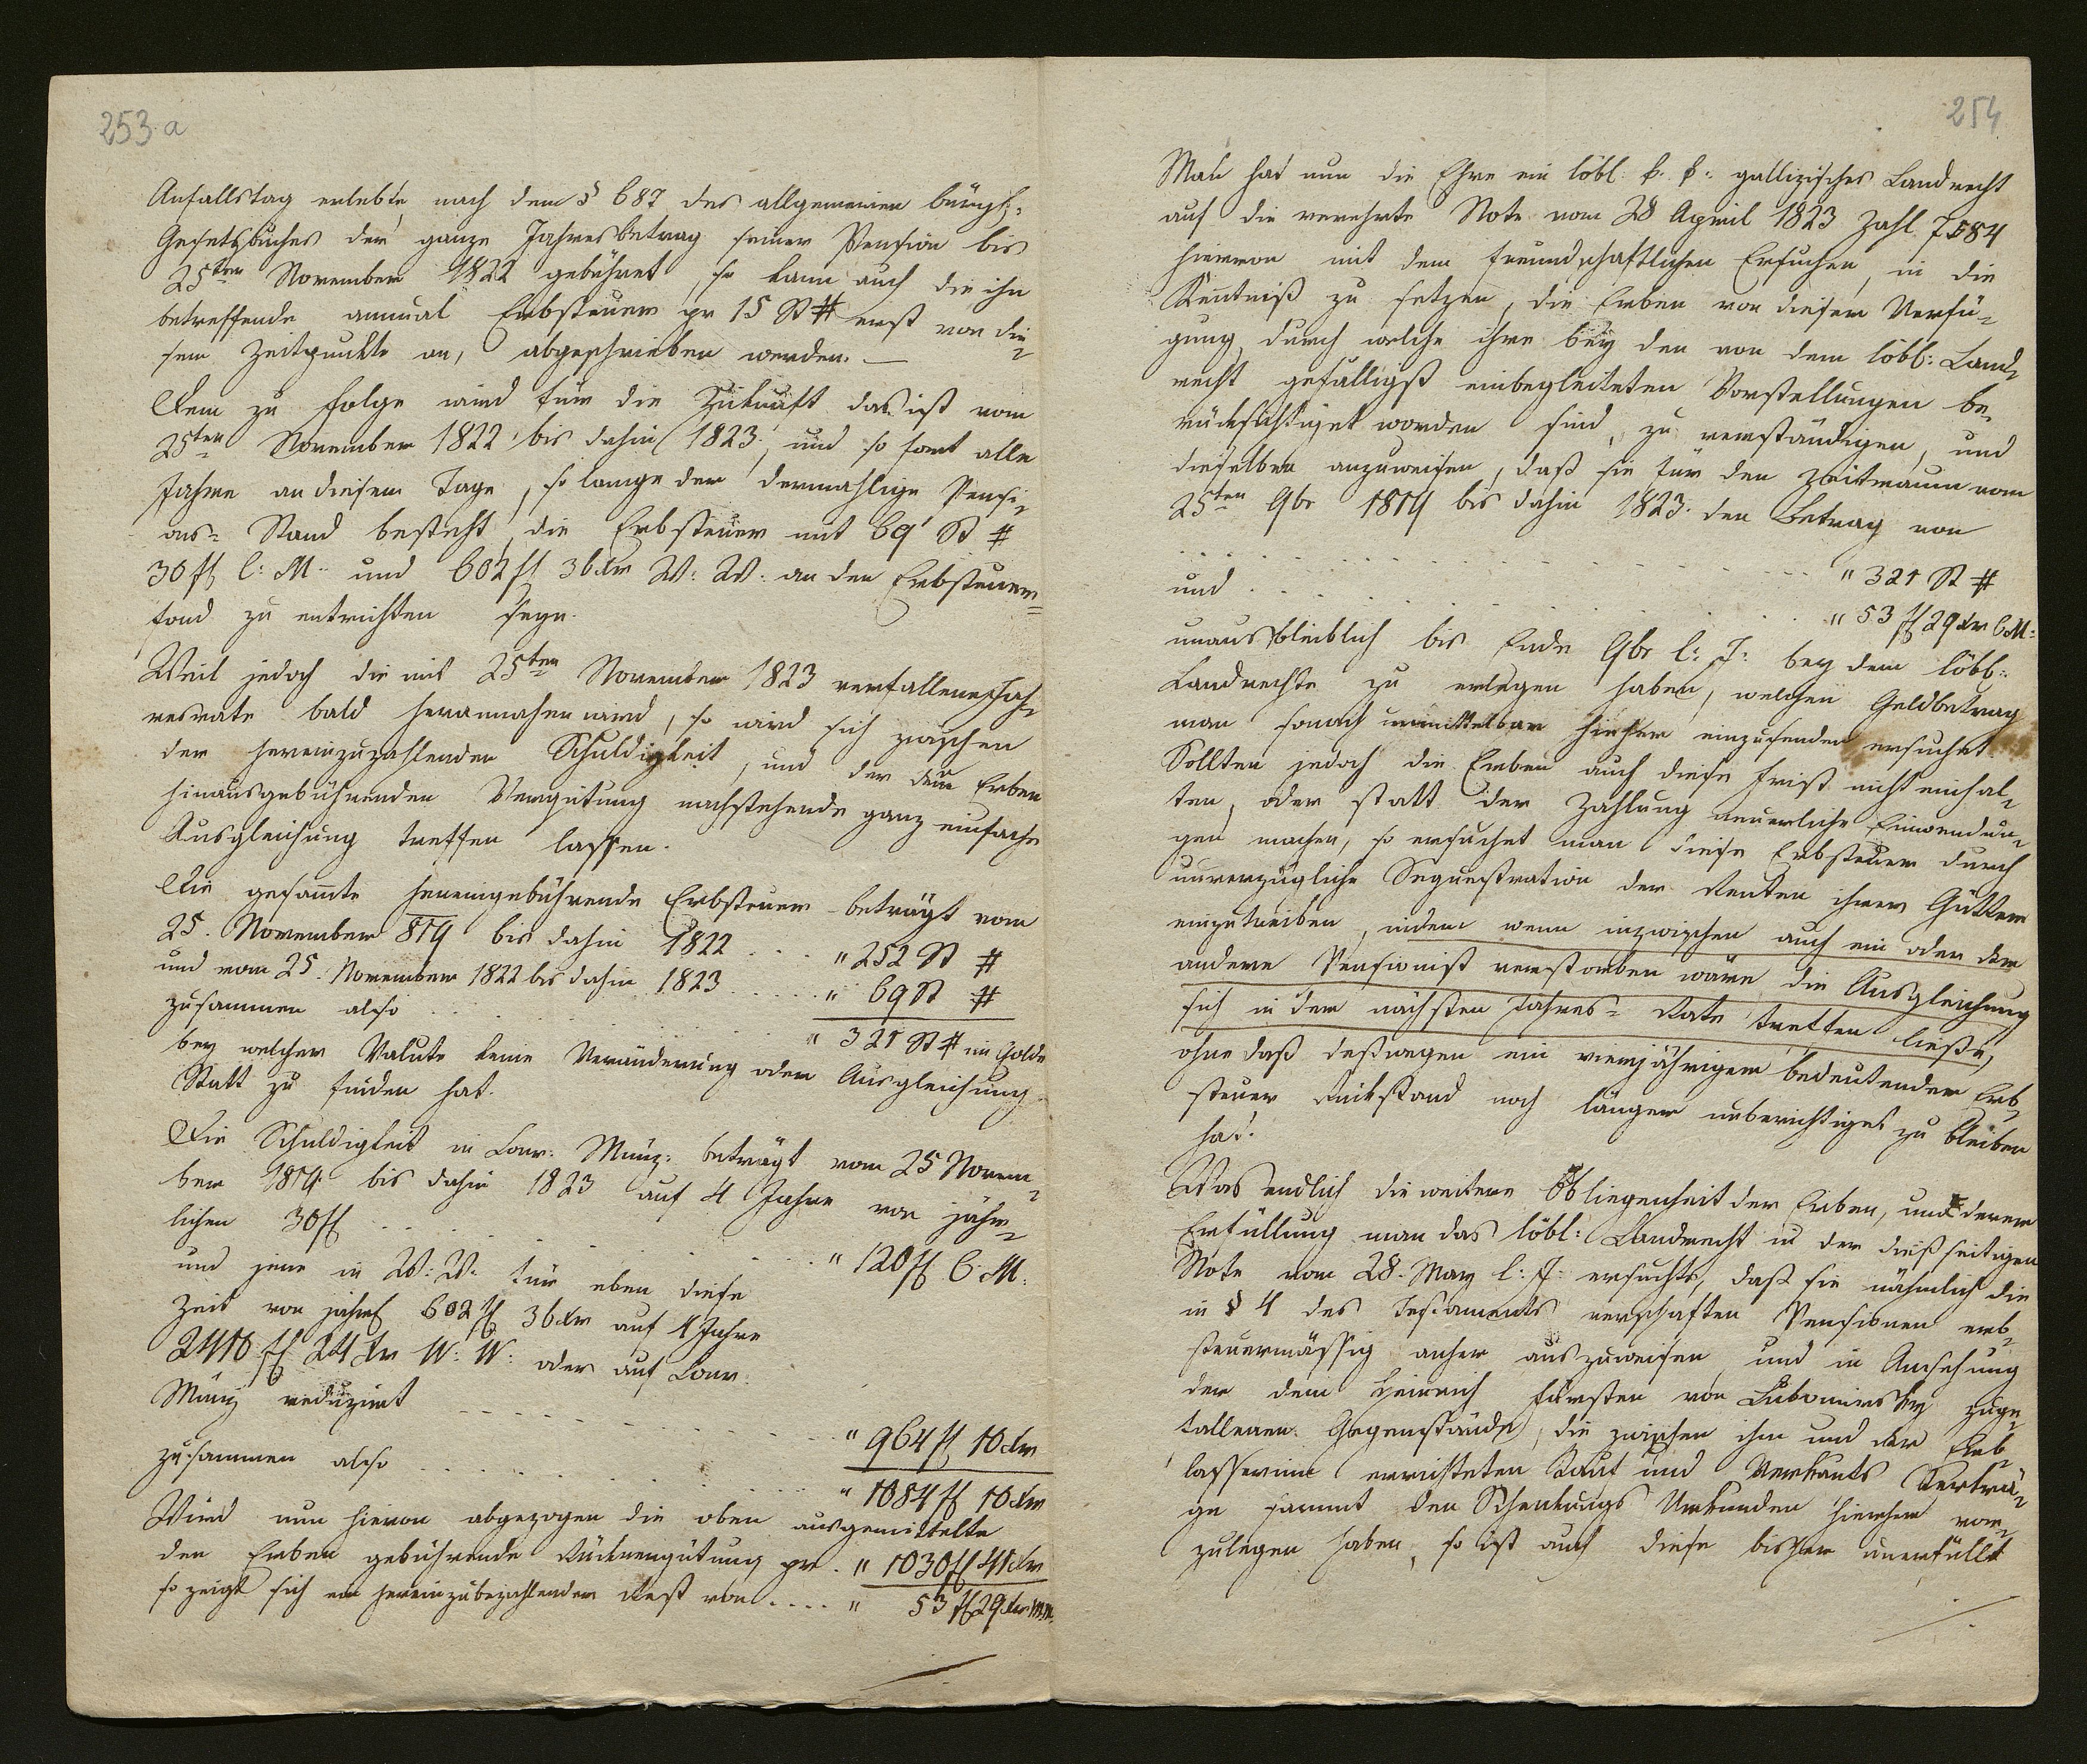 253.a
Anfallstag erlebte, nach dem § 687 des allgemeinen bürgl:
Gesetzbuches der ganze Jahresbetrag seiner Pension bis
25ten November 1822 gebühret, so kann auch die ihn
betreffende annual Erbsteuer pr 15 St # erst von die-
sem Zeitpunkte an, abgeschrieben werden. —
Dem zu Folge wird für die Zukunft das ist vom
25ten November 1822 bis dahin 1823, und so fort alle
Jahre an diesem Tage, so lange der dermahlige Pensi-
ons-Stand besteht, die Erbsteuer mit 69 St #
30 fl C: M. und 602 fl 36 xr W: W. an den Erbsteuer-
fond zu entrichten seyn.
Weil jedoch die mit 25ten November 1823 verfallene Jah-
resrate bald herannahen wird, so wird sich zwischen
der hereinzuzahlenden Schuldigkeit, und der den Erben
hinausgebührenden Vergütung nachstehende ganz einfache
Ausgleichung treffen lassen.
Die gesam̄te hereingebührende Erbsteuer beträgt vom
25. November 819 bis dahin 1822 . . . . " 252 St #
und vom 25. November 1822 bis dahin 1823 . . . . . " 69 St #
zusammen also . . . . . . " 321 St # in Golde
bey welcher Valute keine Veränderung oder Ausgleichung
Statt zu finden hat.
Die Schuldigkeit in Conv: Münz: beträgt vom 25 Novem-
ber 1819. bis dahin 1823 auf 4 Jahre von jähr-
lichen 30 fl . . . . . . . . " 120 fl C. M.
und jene in W: W. für eben diese
Zeit von jährl 602 fl 36 xr auf 4 Jahre
2410 fl 24 xr W: W: oder auf Conv.
Münz reduzirt . . . . . . . . " 964 fl 10 xr
zusammen also . . . . . . . . " 1084 fl 10 xr
Wird nun hievon abgezogen die oben ausgemittelte
den Erben gebührende Rückvergütung pr . " 1030 fl 41 xr
so zeigt sich ein hereinzubezahlender Rest von . . . . " 53 fl 29 xr
254
Man hat nun die Ehre ein löbl: k. k: gallizisches Landrecht
auf die verehrte Note vom 28 April 1823 Zahl 7584
hievon mit dem freundschaftlichen Ersuchen, in die
Keñtniß zu setzen, die Erben von dieser Verfü-
gung, durch welche ihre bey den von dem löbl: Land-
recht gefälligst einbegleiteten Vorstellungen be-
rücksichtiget worden sind, zu verständigen, und
dieselben anzuweisen, daß sie für den Zeitraum vom
25ten 9br 1819 bis dahin 1823. den Betrag von
. . . . . . . . . . . . " 321 St #
und . . . . . . . . . . " 53 fl 29 xr CM:
unausbleiblich bis Ende 9br l: J: bey dem löbl:
Landrechte zu erlegen haben, welchen Geldbetrag
man sonach unmittelbar hieher einzusenden ersuchet.
Sollten jedoch die Erben auch diese Frist nicht einhal-
ten, oder statt der Zahlung neuerliche Einwendun-
gen machen, so ersuchet man diese Erbsteuer durch
unverzügliche Sequestration der Renten ihrer Gütter
einzutreiben, indem wenn inzwischen auch ein oder der
andere Pensionist verstorben wäre die Ausgleichung
sich in der nächsten Jahres-Rate treffen ließe,
ohne daß deßwegen ein vierjähriger bedeutender Erb-
steuer Rückstand noch länger unberichtiget zu bleiben
hat.
Was endlich die weitere Obliegenheit der Erben, und deren
Erfüllung man das löbl: Landrecht in der dießseitigen
Note vom 28. May l: J: ersuchte, daß sie nähmlich die
in § 4 des Testaments verschaften Pensionen erb-
steuermässig anher auszuweisen und in Ansehung
der dem Heinrich Fürsten von Lubomirsky zuge-
fallenen Gegenstände, die zwischen ihm und der Erb-
lasserinn errichteten Kauf und Verkaufs Verträ-
ge sammt den Schenkungs Urkunden hierher vor-
zulegen haben, so ist auch diese bisher unerfüllt